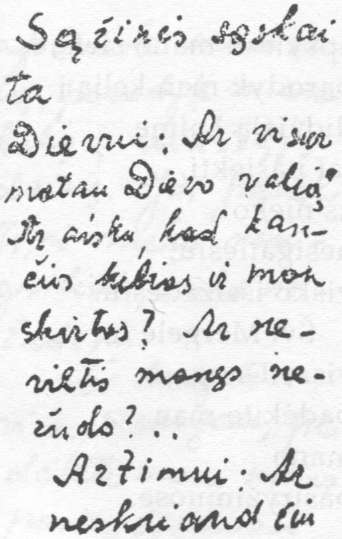 Sąžinės sąskai
ta
Dievui. Ar visur
matau Dievo valią?
Ar aišku kad kan-
čios ir man
skirtos? Ar ne-
viltis manęs ne-
ėda?..
Artimui. Ar
neskriaudžiu